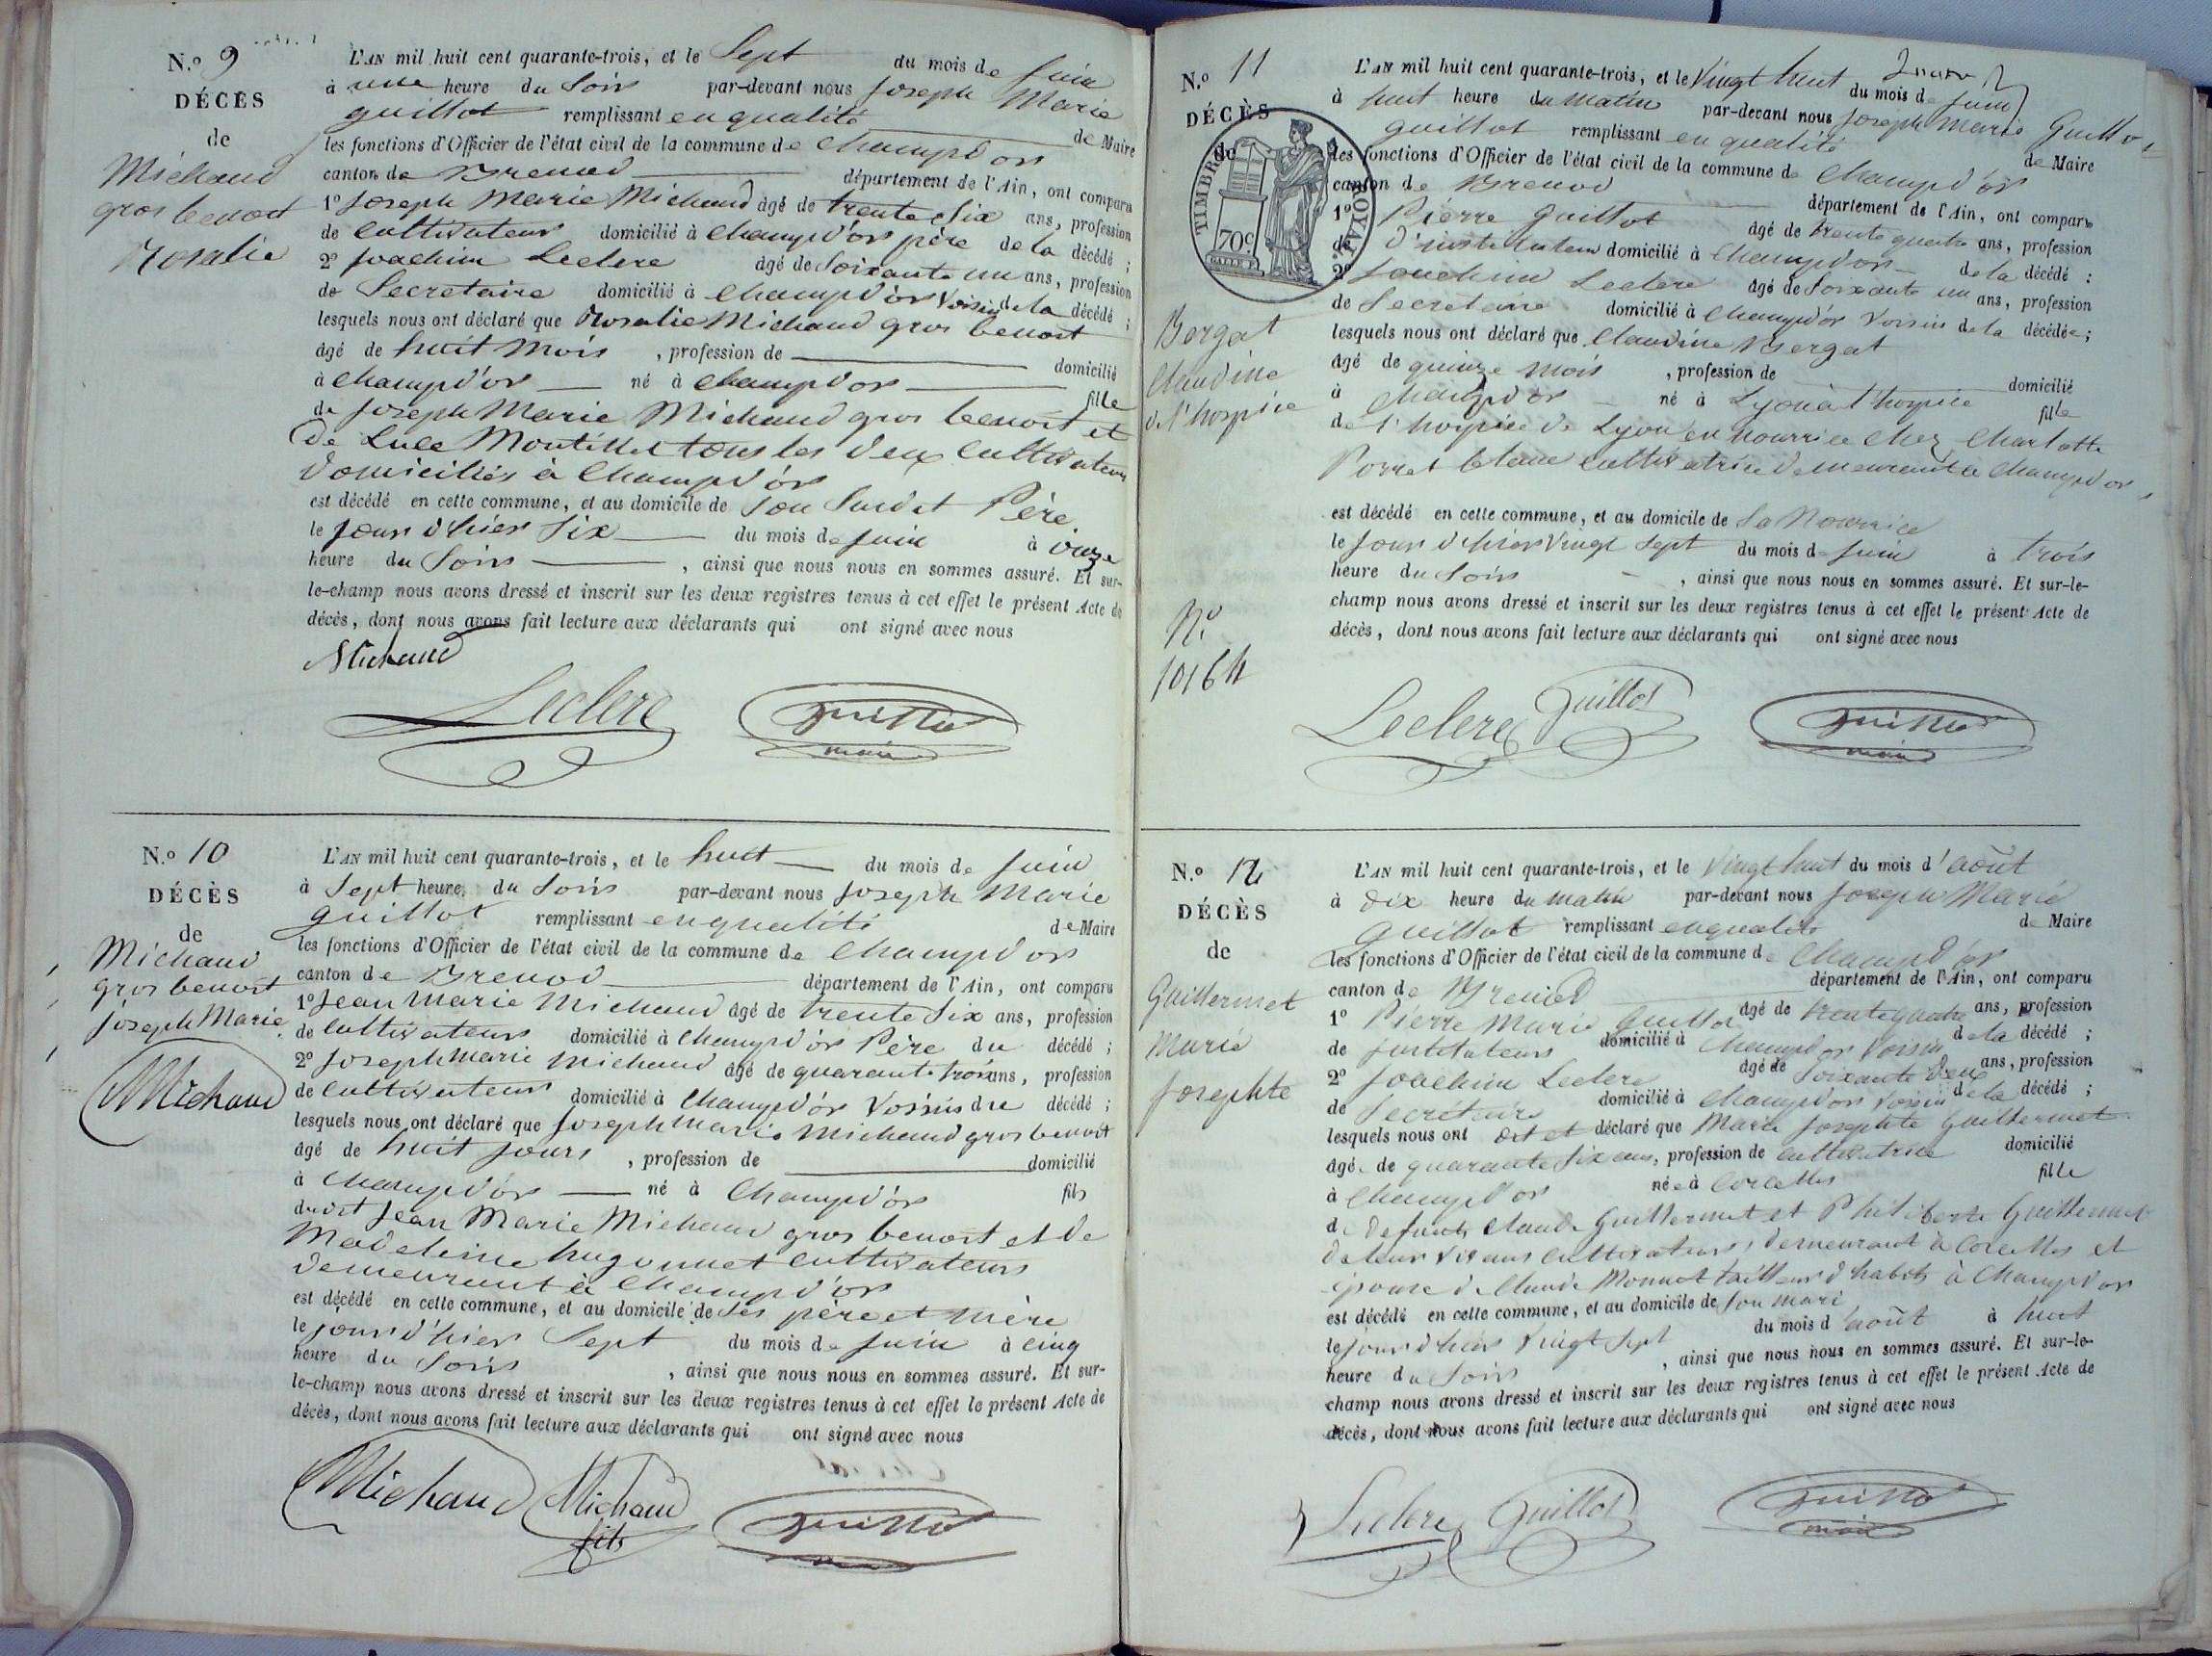 N.º 9
DÉCÈS
de
Michaud
gros benoit
Rosalie
L'AN mil huit cent quarante-trois, et le Sept du mois de juin
à une heure du Soir par-devant nous Joseph Marie
guillot remplissant en qualité de Maire
les fonctions d'Officier de l'état civil de la commune de Champd'or
canton de Brenod département de l'Ain, ont comparu
1º Joseph Marie Michaud âgé de trente Six ans, profession
de Cultivateur domicilié à Champd'or père de la décédé ;
2º Joachim Leclerc âgé de Soixante un ans, profession
de Secretaire domicilié à Champd'or Voisin de la décédé ;
lesquels nous ont déclaré que Rosalie Michaud gros benoit
âgé de huit mois , profession de domicilié
à Champd'or né à Champd'or fille
de Joseph Marie Michaud gros benoit et
de Luce Montillet tous les deux Cultivateurs
domiciliés à Champd'or
est décédé en cette commune, et au domicile de Son Susdit Père
le jour d'hier Six du mois de juin à onze
heure du Soir , ainsi que nous nous en sommes assuré. Et sur-
le-champ nous avons dressé et inscrit sur les deux registres tenus à cet effet le présent Acte de
décès, dont nous avons fait lecture aux déclarants qui ont signé avec nous
Michaud
Leclerc Guillot
maire
N.º 10
DÉCÈS
de
Michaud
gros benoit
Joseph Marie
Michaud
L'AN mil huit cent quarante-trois, et le huit du mois de juin
à Sept heure du Soir par-devant nous Joseph Marie
guillot remplissant en qualité de Maire
les fonctions d'Officier de l'état civil de la commune de Champd'or
canton de Brenod département de l'Ain, ont comparu
1º Jean Marie Michaud âgé de trente Six ans, profession
de Cultivateur domicilié à Champd'or Père du décédé ;
2º Joseph Marie Michaud âgé de quarante trois ans, profession
de Cultivateur domicilié à Champd'or Voisin du décédé ;
lesquels nous ont déclaré que Joseph Marie Michaud gros benoit
âgé de huit jours , profession de domicilié
à Champd'or né à Champd'or fils
dudit Jean Marie Michaud gros benoit et de
Madeleine hugonnet Cultivateurs
demeurant à Champd'or
est décédé en cette commune, et au domicile de Ses père et mère
le jour d'hier Sept du mois de juin à cinq
heure du Soir , ainsi que nous nous en sommes assuré. Et sur-
le-champ nous avons dressé et inscrit sur les deux registres tenus à cet effet le présent Acte de
décès, dont nous avons fait lecture aux déclarants qui ont signé avec nous
Michaud Michaud Guillot
fils
N.º 11
DÉCÈS
de
TIMBRE ROYAL
70c
Bergat
Claudine
de l'hospice
Nº
10164
L'AN mil huit cent quarante-trois, et le Vingt huit du mois de juin
à huit heure du Matin par-devant nous Joseph Marie Guillot
guillot remplissant en qualité de Maire
les fonctions d'Officier de l'état civil de la commune de Champd'or
canton de Brenod département de l'Ain, ont comparu
1º Pierre Guillot âgé de trente quatre ans, profession
de d'instituteur domicilié à Champd'or de la décédé :
2º Joachim Leclerc âgé de Soixante un ans, profession
de Secretaire domicilié à Champd'or Voisin de la décédée ;
lesquels nous ont déclaré que Claudine Bergat
âgé de quinze mois , profession de domicilié
à Champd'or né à Lyon à l'hospice fille
de l'hospice de Lyon en nourrice chez Charlotte
Porret cultivatrice demeurant à Champd'or
est décédé en cette commune, et au domicile de Sa Nourrice
le jour d'hier Vingt Sept du mois de juin à trois
heure du Soir , ainsi que nous nous en sommes assuré. Et sur-le-
champ nous avons dressé et inscrit sur les deux registres tenus à cet effet le présent Acte de
décès, dont nous avons fait lecture aux déclarants qui ont signé avec nous
Leclerc Guillot Guillot
maire
N.º 12
DÉCÈS
de
Guillermet
Marie
Josephte
L'AN mil huit cent quarante-trois, et le Vingt huit du mois d'août
à dix heure du matin par-devant nous Joseph Marie
Guillot remplissant en qualité de Maire
les fonctions d'Officier de l'état civil de la commune de Champd'or
canton de Brenod département de l'Ain, ont comparu
1º Pierre Marie Guillot âgé de trente quatre ans, profession
de instituteur domicilié à Champd'or Voisin de la décédé ;
2º Joachim Leclerc âgé de Soixante deux ans, profession
de Secrétaire domicilié à Champd'or Voisin de la décédé ;
lesquels nous ont dit et déclaré que Marie Josephte Guillermet
âgé de quarante Six ans, profession de Cultivatrice domicilié
à Champd'or née à Corcelles fille
de defunts Claude Guillermet et Philiberte Guillermet
de leur vivans Cultivateurs, demeurant à Corcelles et
épouse de Claude Monnet tailleur d'habits à Champd'or
est décédé en cette commune, et au domicile de Son mari
le jour d'hier Vingt Sept du mois d'août à huit
heure du Soir , ainsi que nous nous en sommes assuré. Et sur-le-
champ nous avons dressé et inscrit sur les deux registres tenus à cet effet le présent Acte de
décès, dont nous avons fait lecture aux déclarants qui ont signé avec nous
Leclerc Guillot Guillot
maire